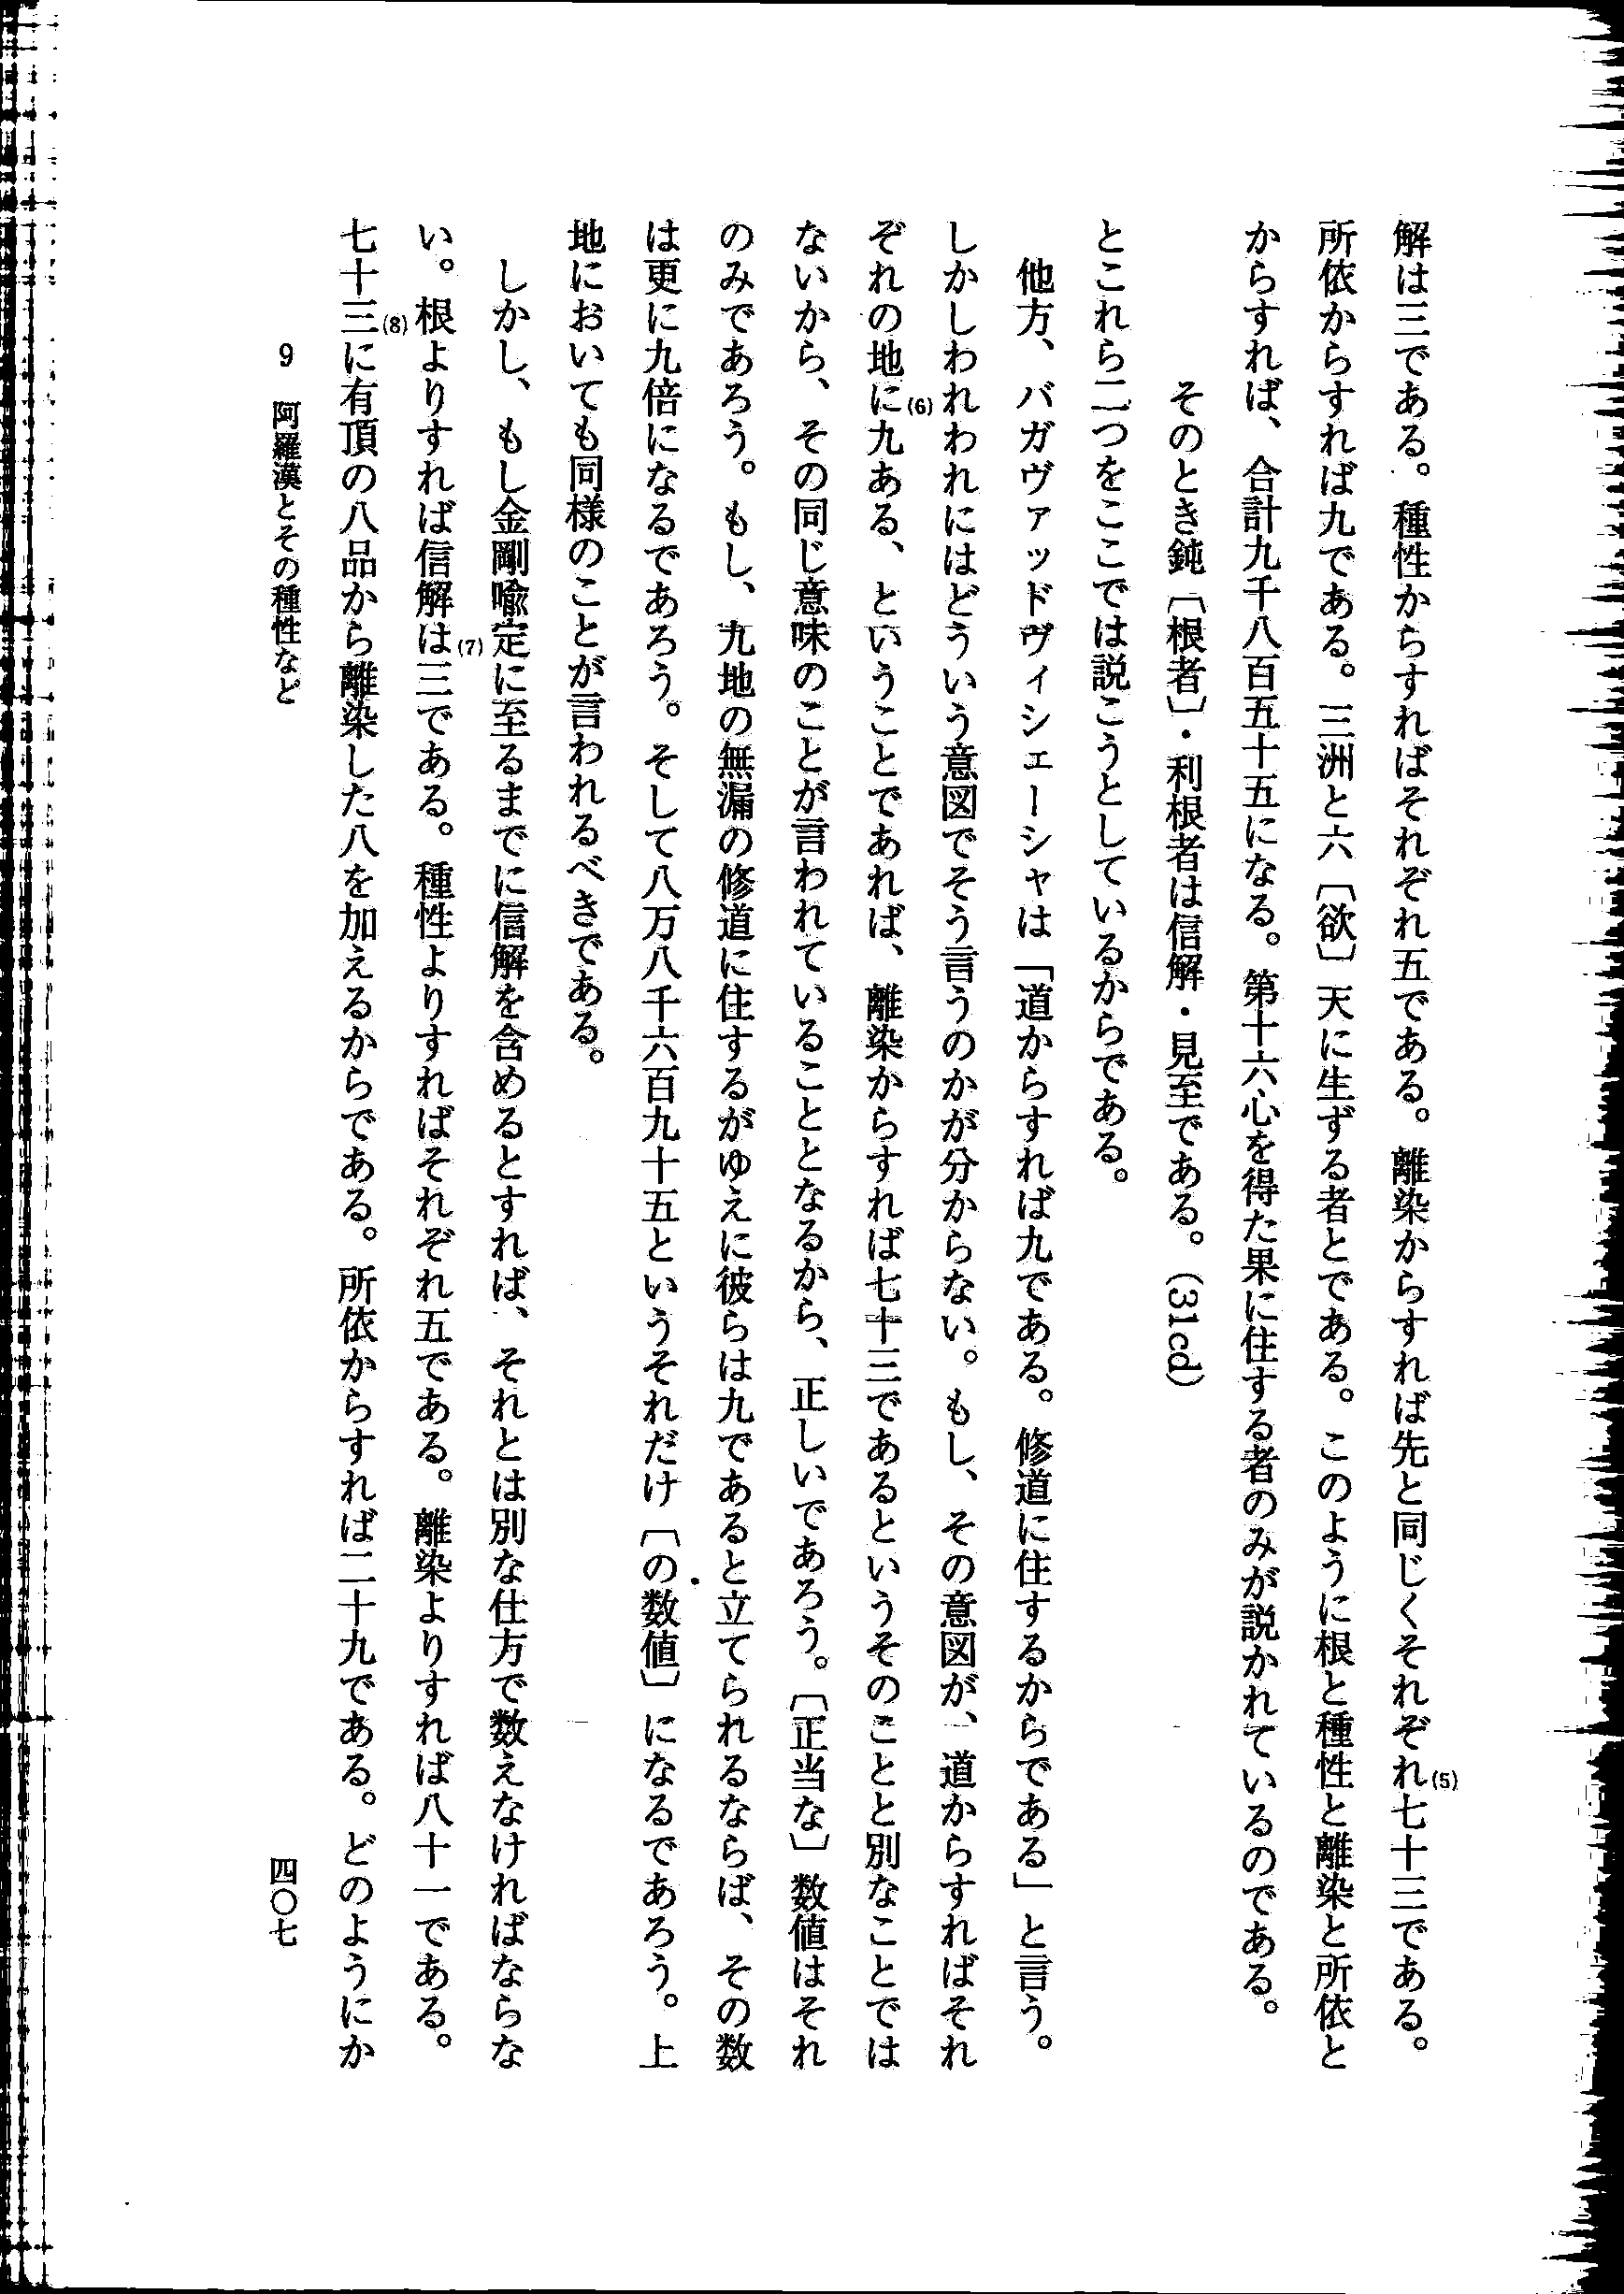 解は三である。種性からすればそれぞれ五である。離染からすれば先と同じくそれぞれ(5)七十三である。
所依からすれば九である。三洲と六〔欲〕天に生ずる者とである。このように根と種性と離染と所依と
からすれば、合計九千八百五十五になる。第十六心を得た果に住する者のみが説かれているのである。
そのとき鈍〔根者〕・利根者は信解・見至である。(31cd)
とこれら二つをここでは説こうとしているからである。
他方、バガヴァッドヴィシェーシャは「道からすれば九である。修道に住するからである」と言う。
しかしわれわれにはどういう意図でそう言うのかが分からない。もし、その意図が、道からすればそれ
ぞれの地に(6)九ある、ということであれば、離染からすれば七十三であるというそのことと別なことでは
ないから、その同じ意味のことが言われていることとなるから、正しいであろう。〔正当な〕数値はそれ
のみであろう。もし、九地の無漏の修道に住するがゆえに彼らは九であると立てられるならば、その数
は更に九倍になるであろう。そして八万八千六百九十五というそれだけ〔の数値〕になるであろう。上
地においても同様のことが言われるべきである。
しかし、もし金剛喩定に至るまでに信解を含めるとすれば、それとは別な仕方で数えなければならな
い。根よりすれば信解は(7)三である。種性よりすればそれぞれ五である。離染よりすれば八十一である。
七十三(8)に有頂の八品から離染した八を加えるからである。所依からすれば二十九である。どのようにか
9 阿羅漢とその種性など
四〇七